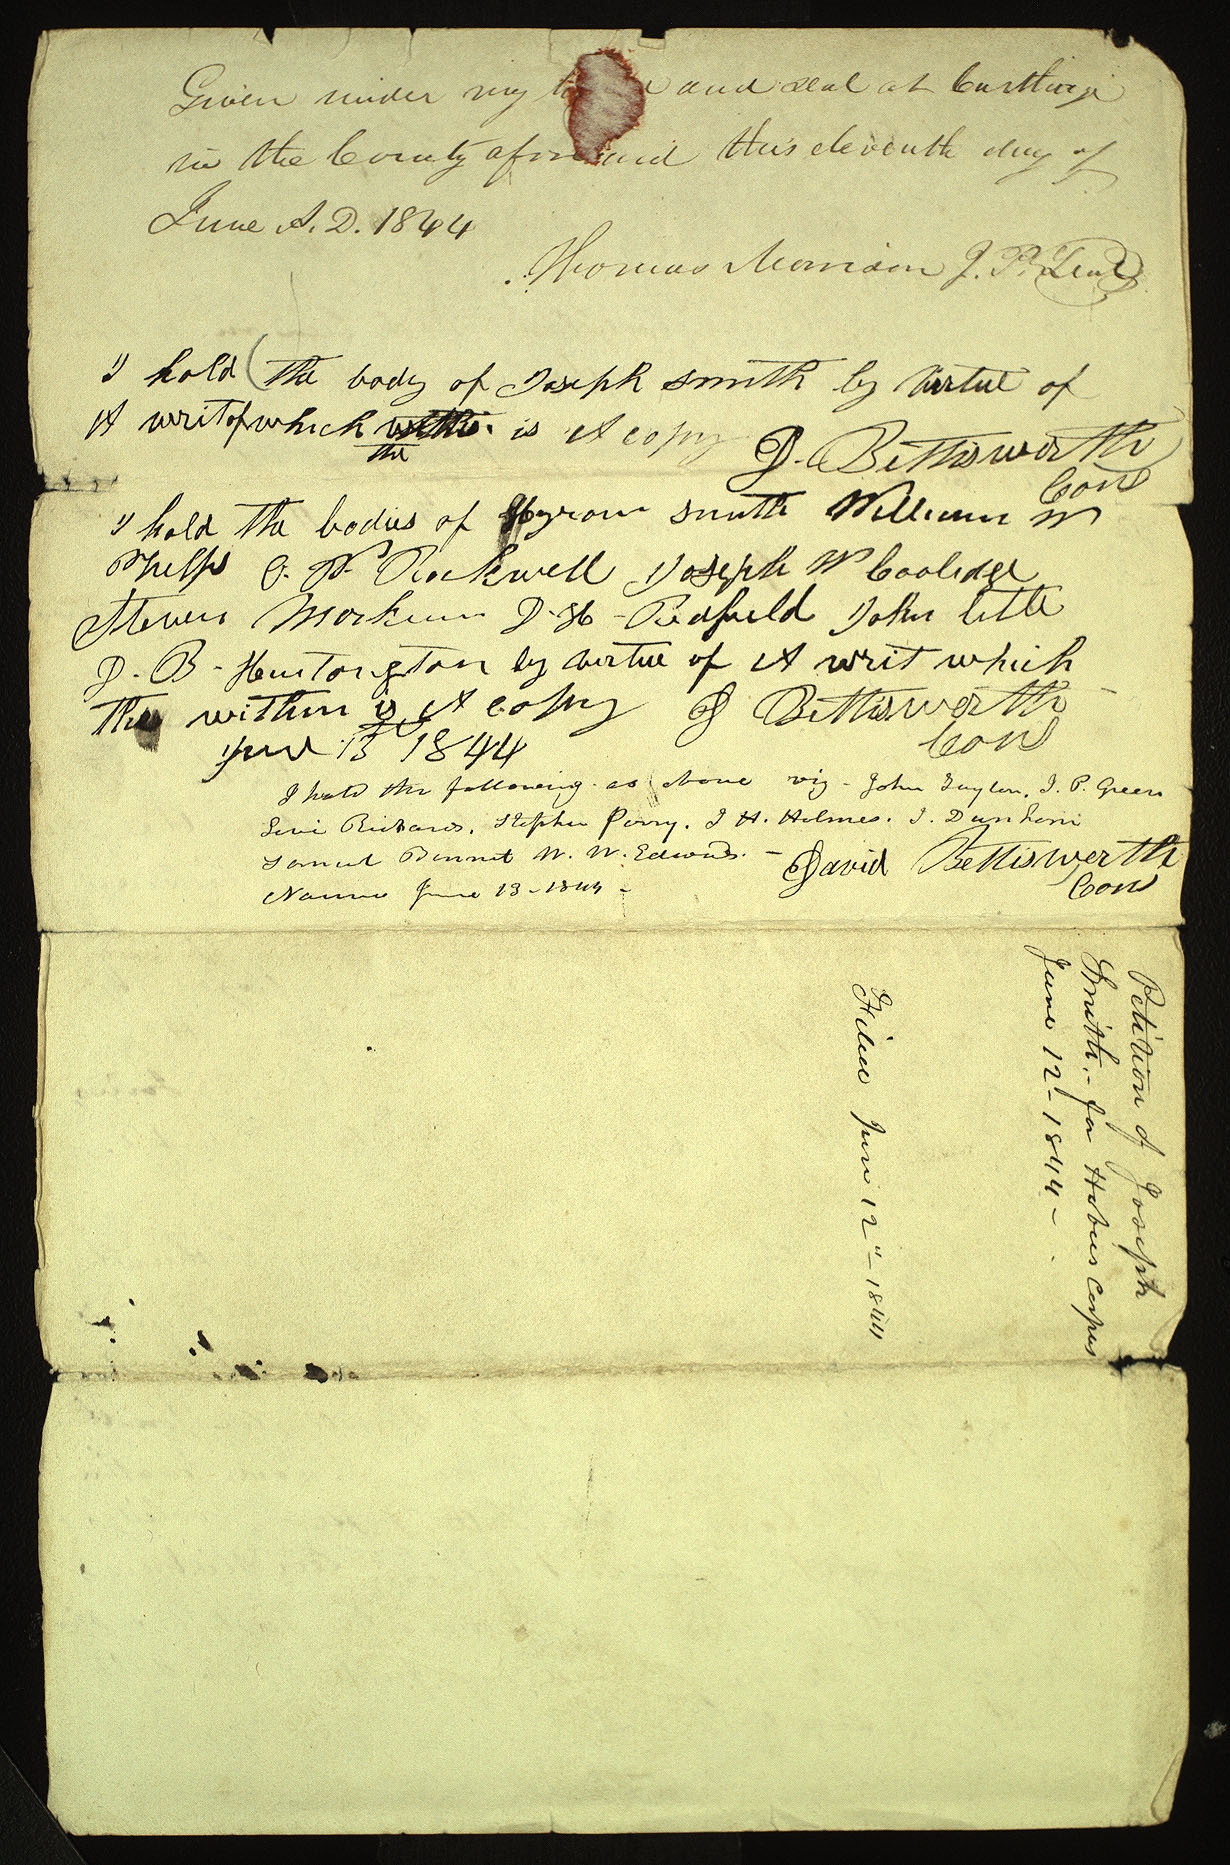 Given under my and seal at Carthage
in the County aforesaid this eleventh day of
June A. D. 1844
Thomas Morrison J. P. Seal
I hold the body of Joseph Smith by virtue of
A writ of which the is A copy D. Bettisworth
Cons
I hold the bodies of Hyrom Smith William W
Phelps O. P. Rockwell Joseph W Coolidge
Steven Markum D. H - Redfield John Lttle
D. B - Huntongton by virtue of A writ which
the within is A copy D Bettisworth
Cons
June 13 1844
I hold the following as above viz - John Taylor, J. P. Green
Levi Richards, Stephen Perry, J H. Holmes. J. Dunham
Samuel Bennet W. W. Edwards. - David Bettisworth
Nauvoo June 13 - 1844 - Cons
Petition of Joseph
Smith - for Habeus Corpus
June 12 - 1844 -
Filed June 12" - 1844